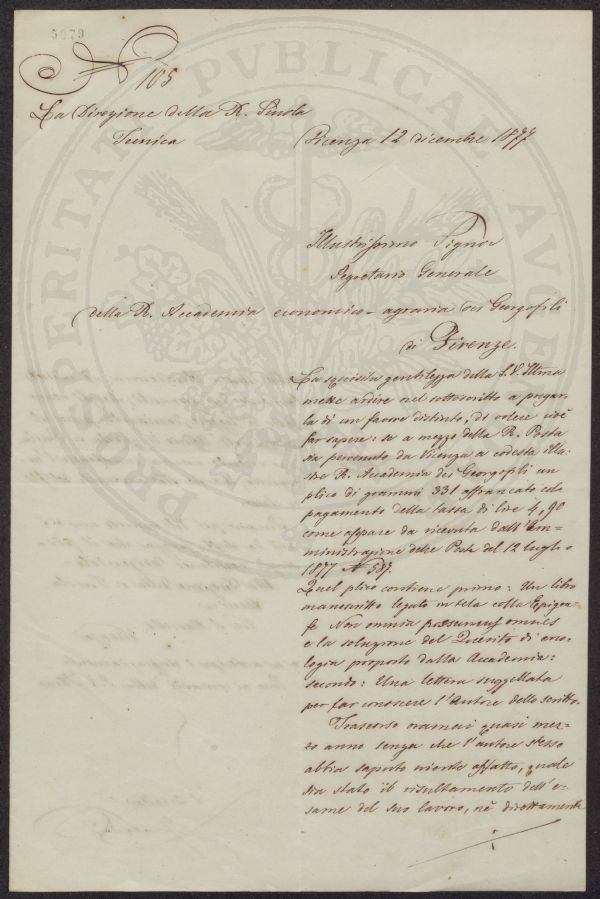 5079
N 105
La Direzione della R. Scuola
Tecnica
Vicenza 12 dicembre 1877
Illustrissimo Signor
Segretario Generale
della R. Accademia economico-agraria dei Georgofili
di Firenze.
La squisita gentilezza della S.V. Illma
mette ardire nel sottoscritto a pregar
la di un favore distinto, di volere cioè
far sapere: se a mezzo della R. Posta
sia pervenuto da Vicenza a codesta Illu-
stre R. Accademia dei Georgofili un
plico di grammi 331 affrancato col
pagamento della tassa di lire 4,90
come appare da ricevuta dell'Am=
ministrazione delle Poste del 12 luglio
1877 N 587.
Quel plico contiene primo: Un libro
manoscritto legato in tela colla Epigra-
fe Non omnia possumus omnes
e la soluzione del Quesito di eno-
logia proposto dalla Accademia:
secondo: Una lettera suggellata
per far conoscere l'autore dello scritto.
Trascorso oramai quasi mez-
zo anno senza che l'autore stesso
abbia saputo niente affatto, quale
sia stato il risultamento dell'e-
same del suo lavoro, nè direttamente
PROSPERITATI PUBLICAE AUGENDAE